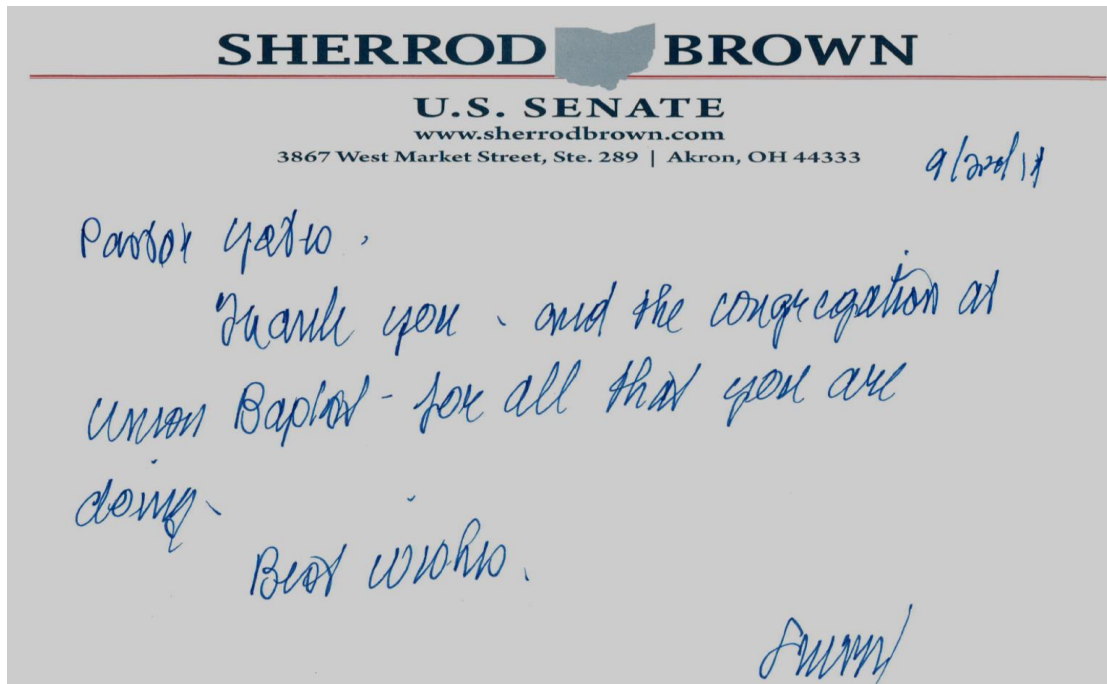 SHERROD BROWN
U.S. SENATE
www.sherrodbrown.com
3867 West Market Street, Ste. 289 | Akron, OH 44333
Pastor Yates,
Thank you - and the congregation at
Union Baptist - for all that you are
doing.
Best wishes,
Sherrod